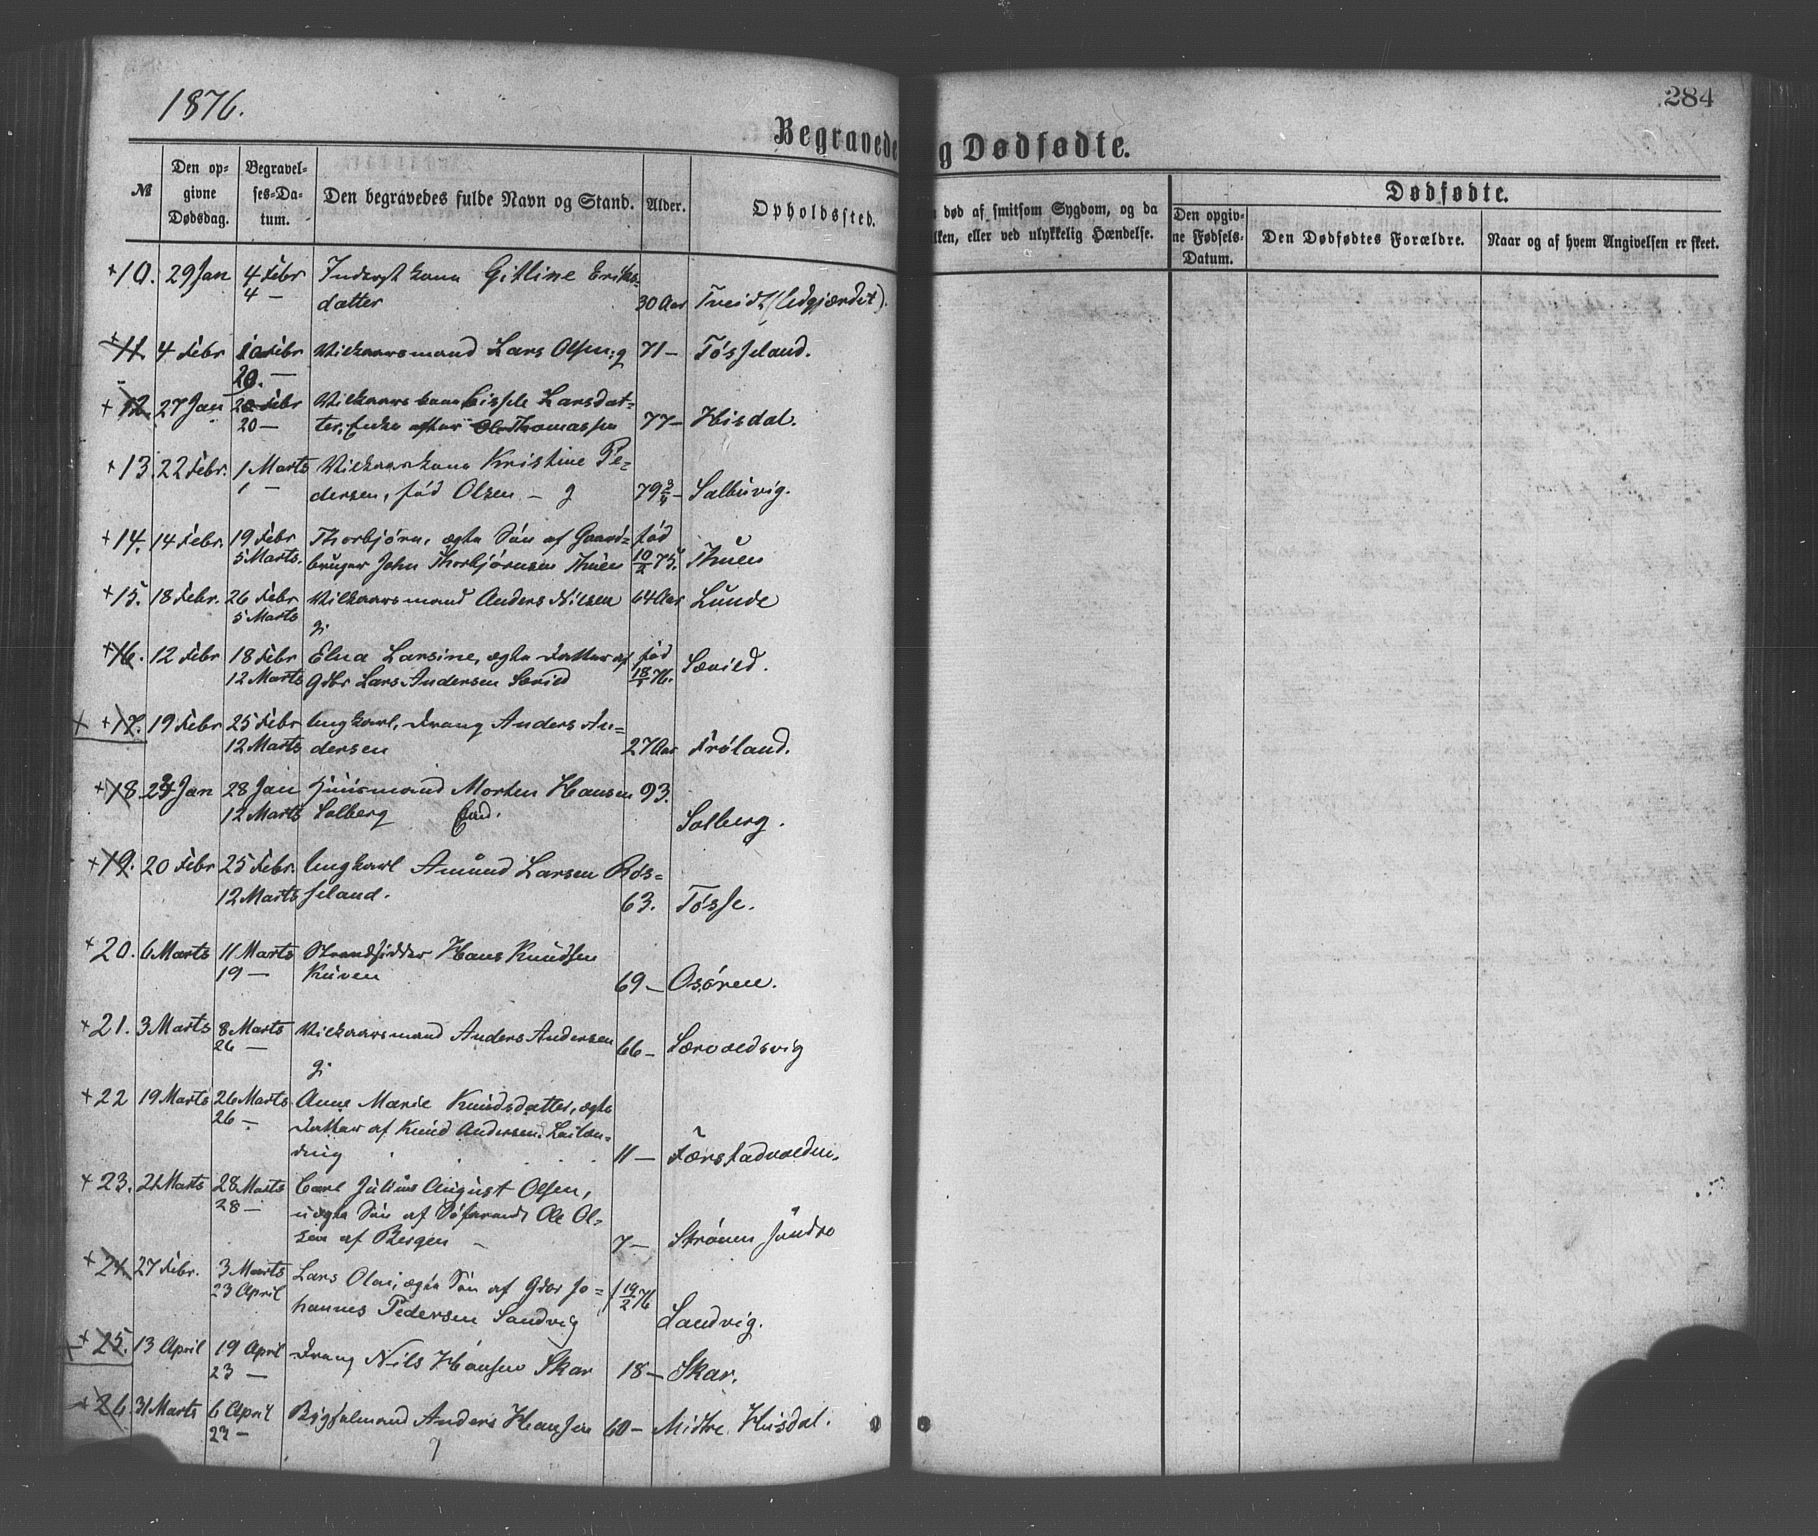 1876.
284
Begravede
g Dødfødte.
№
Den op-
givne
Dødsdag.
Begravel-
ses-Da-
tum.
Den begravedes fulde Navn og Stand.
Alder.
Opholdssted.
død af smitsom Sygdom, og da
lken, eller ved ulykkelig Hændelse.
Dødfødte.
Den opgiv-
ne Fødsels-
Datum.
Den Dødfødtes Forældre.
Naar og af hvem Angivelsen er skeet.
+ 10. 29 Jan 4 Febr Inderstkone Gitline Eriks-
4 — datter 30 Aar Tveidt (Udgjærdet).
+ 11 4 Febr 10 Febr Vilkaarsmand Lars Olsen, g 71 — Tøsseland.
20. —
+ 12. 27 Jan 20 Febr Vilkaarskone Lars dat-
20 — ter, Enke efter Ole Thomassen 77 — Hisdal.
+ 13 22 Febr. 1 Marts Vilkaarskone Kristine Pe-
1 — dersen, fød Olsen — g 79 3/4 — Salbuvig.
+ 14. 14 Febr. 19 Febr Thorbjørn, ægte Søn af Gaard- fød
5 Marts. bruger John Thorbjørnsen Thuen 10/2 75. Thuen
+ 15. 18 Febr. 26 Febr Vilkaarsmand Anders Nilsen 64 Aar Lunde
5 Marts g.
+ 16. 12 Febr 18 Febr Elna Larsine, ægte Datter af fød
12 Marts Gdbr Lars Andersen Søvied 18/1 76. Søvied.
+ + 17. 19 Febr 25 Febr Ungkarl, Dreng Anders An-
12 Marts dersen 27 Aar Frøland.
+ 18 24 Jan 28 Jan Huusmand Morten Hansen 93.
12 Marts Solberg Enk. Solberg.
+ 19. 20 Febr 25 Febr. Ungkarl Amund Larsen Røs-
12 Marts seland. 63. Tøsse.
+ 20. 6 Marts 11 Marts Strandsidder Hans Knudsen
19 — Kuven 69 — Osøren.
+ 21. 3 Marts 8 Marts Vilkaarsmand Anders Andersen
26 — g. 66 — Særvoldsvig
+ 22 19 Marts 26 Marts Anne Marie Knudsdatter, ægte
26 — Datter af Knud Andersen
11 —
+ 23. 21 Marts 28 Marts Carl Julius August Olsen,
28 — uægte Søn af Søfarende Ole Ol-
sen af Bergen — 7 — Strønen
+ 24. 27 Febr. 3 Marts Lars Olai, ægte Søn af Gdbr Jo- f 19/2 76
23 April hannes Pedersen Sandvig Sandvig.
+ 25. 13 April 19 April Dreng Nils Hansen Skar 18 — Skar.
23 —
+ 26. 31 Marts 6 April Bygselmand Anders Hansen 60 — Midtre Hisdal.
23 — g